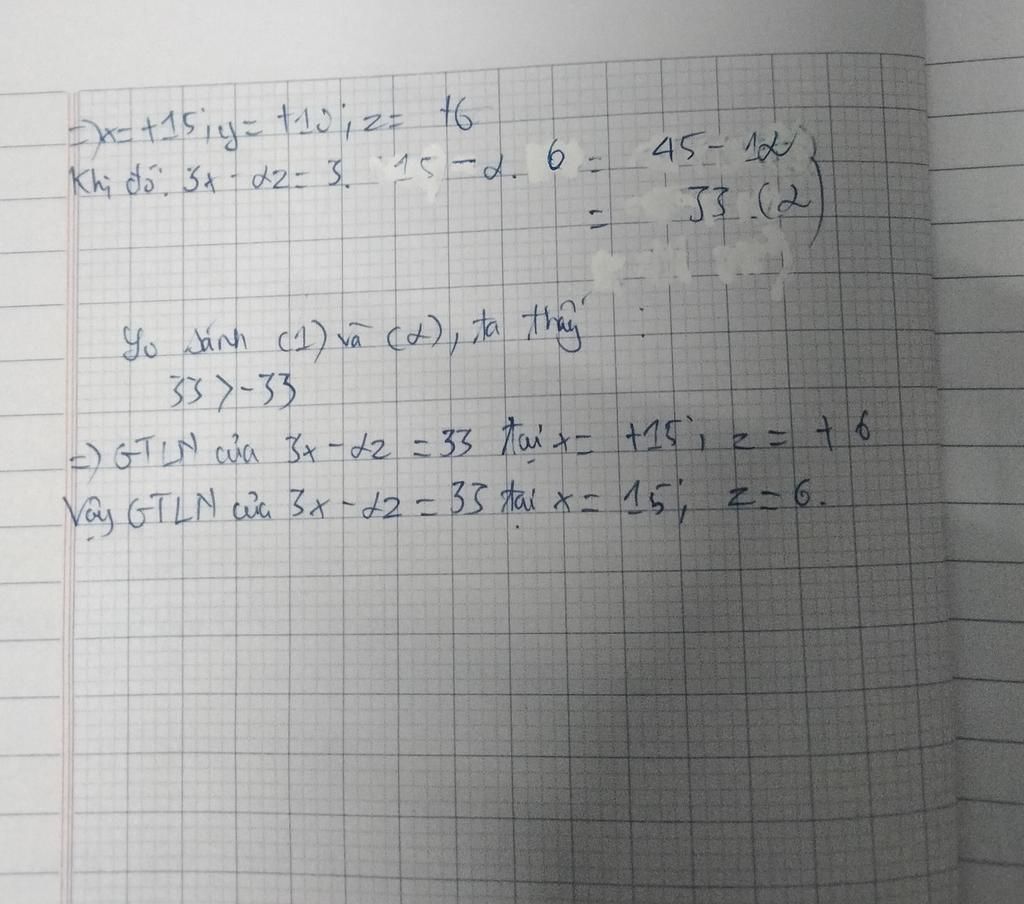 => x = +15; y = +10; z = +6
Khi đó: 3x - 2z = 3. 15 - 2. 6 = 45 - 12
= 33 (2)
So sánh (1) và (2), ta thấy :
33 > -33
=> GTLN của 3x - 2z = 33 tại x = +15; z = +6
Vậy GTLN của 3x - 2z = 33 tại x = 15; z = 6.